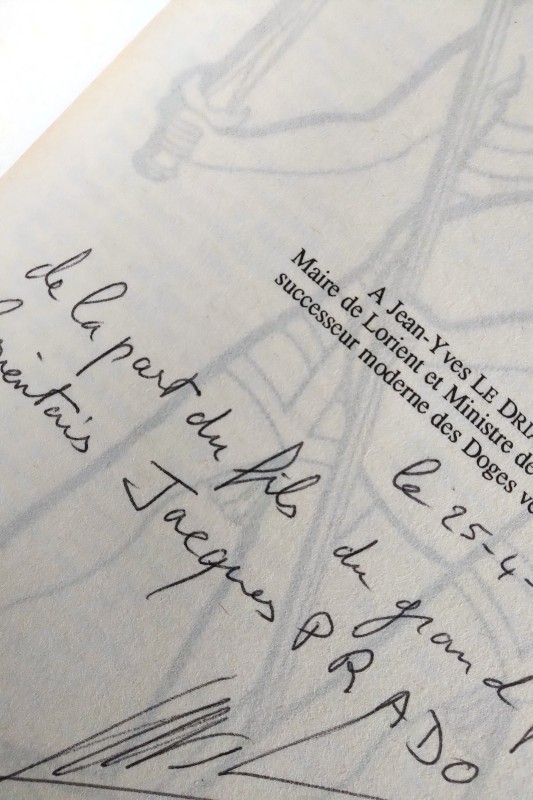 A Jean-Yves LE DRIA
Maire de Lorient et Ministre de
successeur moderne des Doges vé
le 25-4-
de la part du fils du grand
lorientais Jacques PRADO